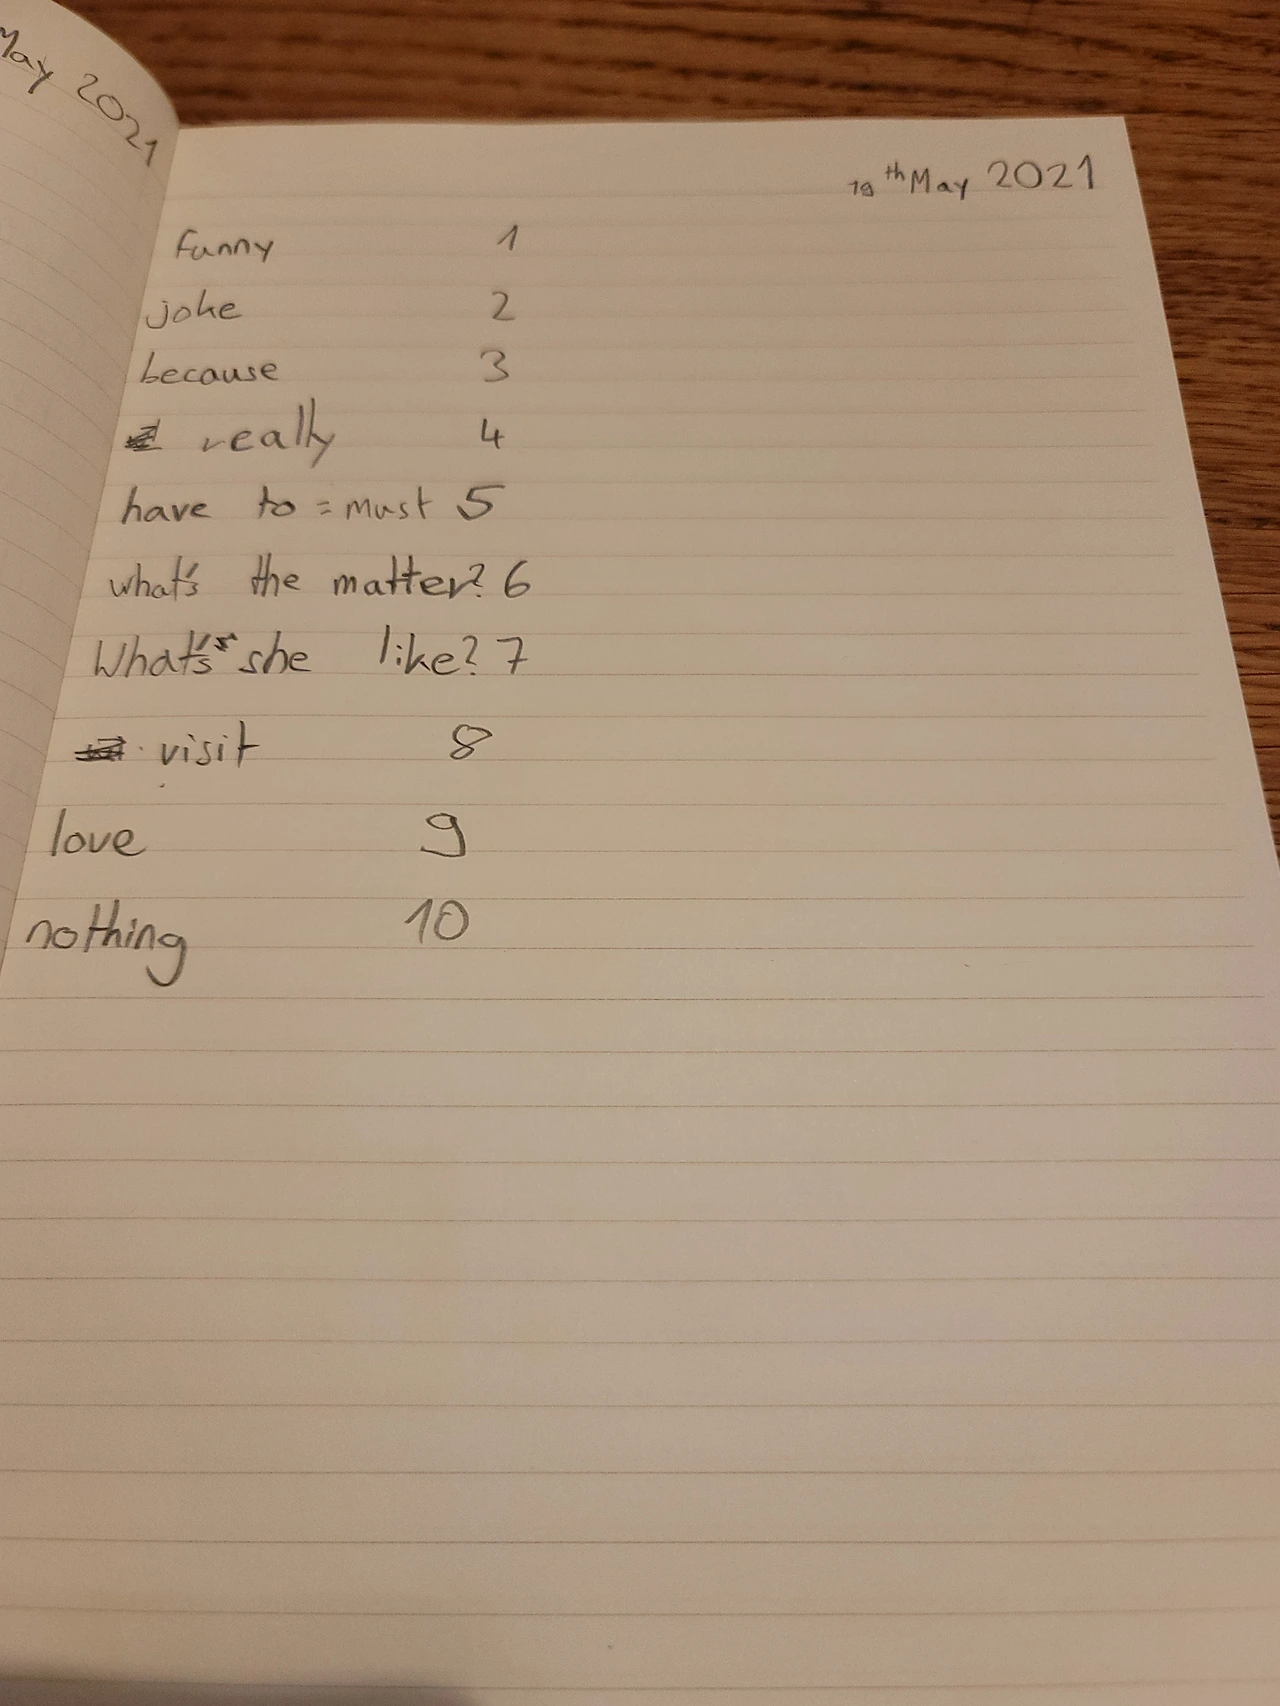 May 2021
19th May 2021
funny 1
joke 2
because 3
really 4
have to = must 5
what's the matter? 6
What's she like? 7
visit 8
love 9
nothing 10